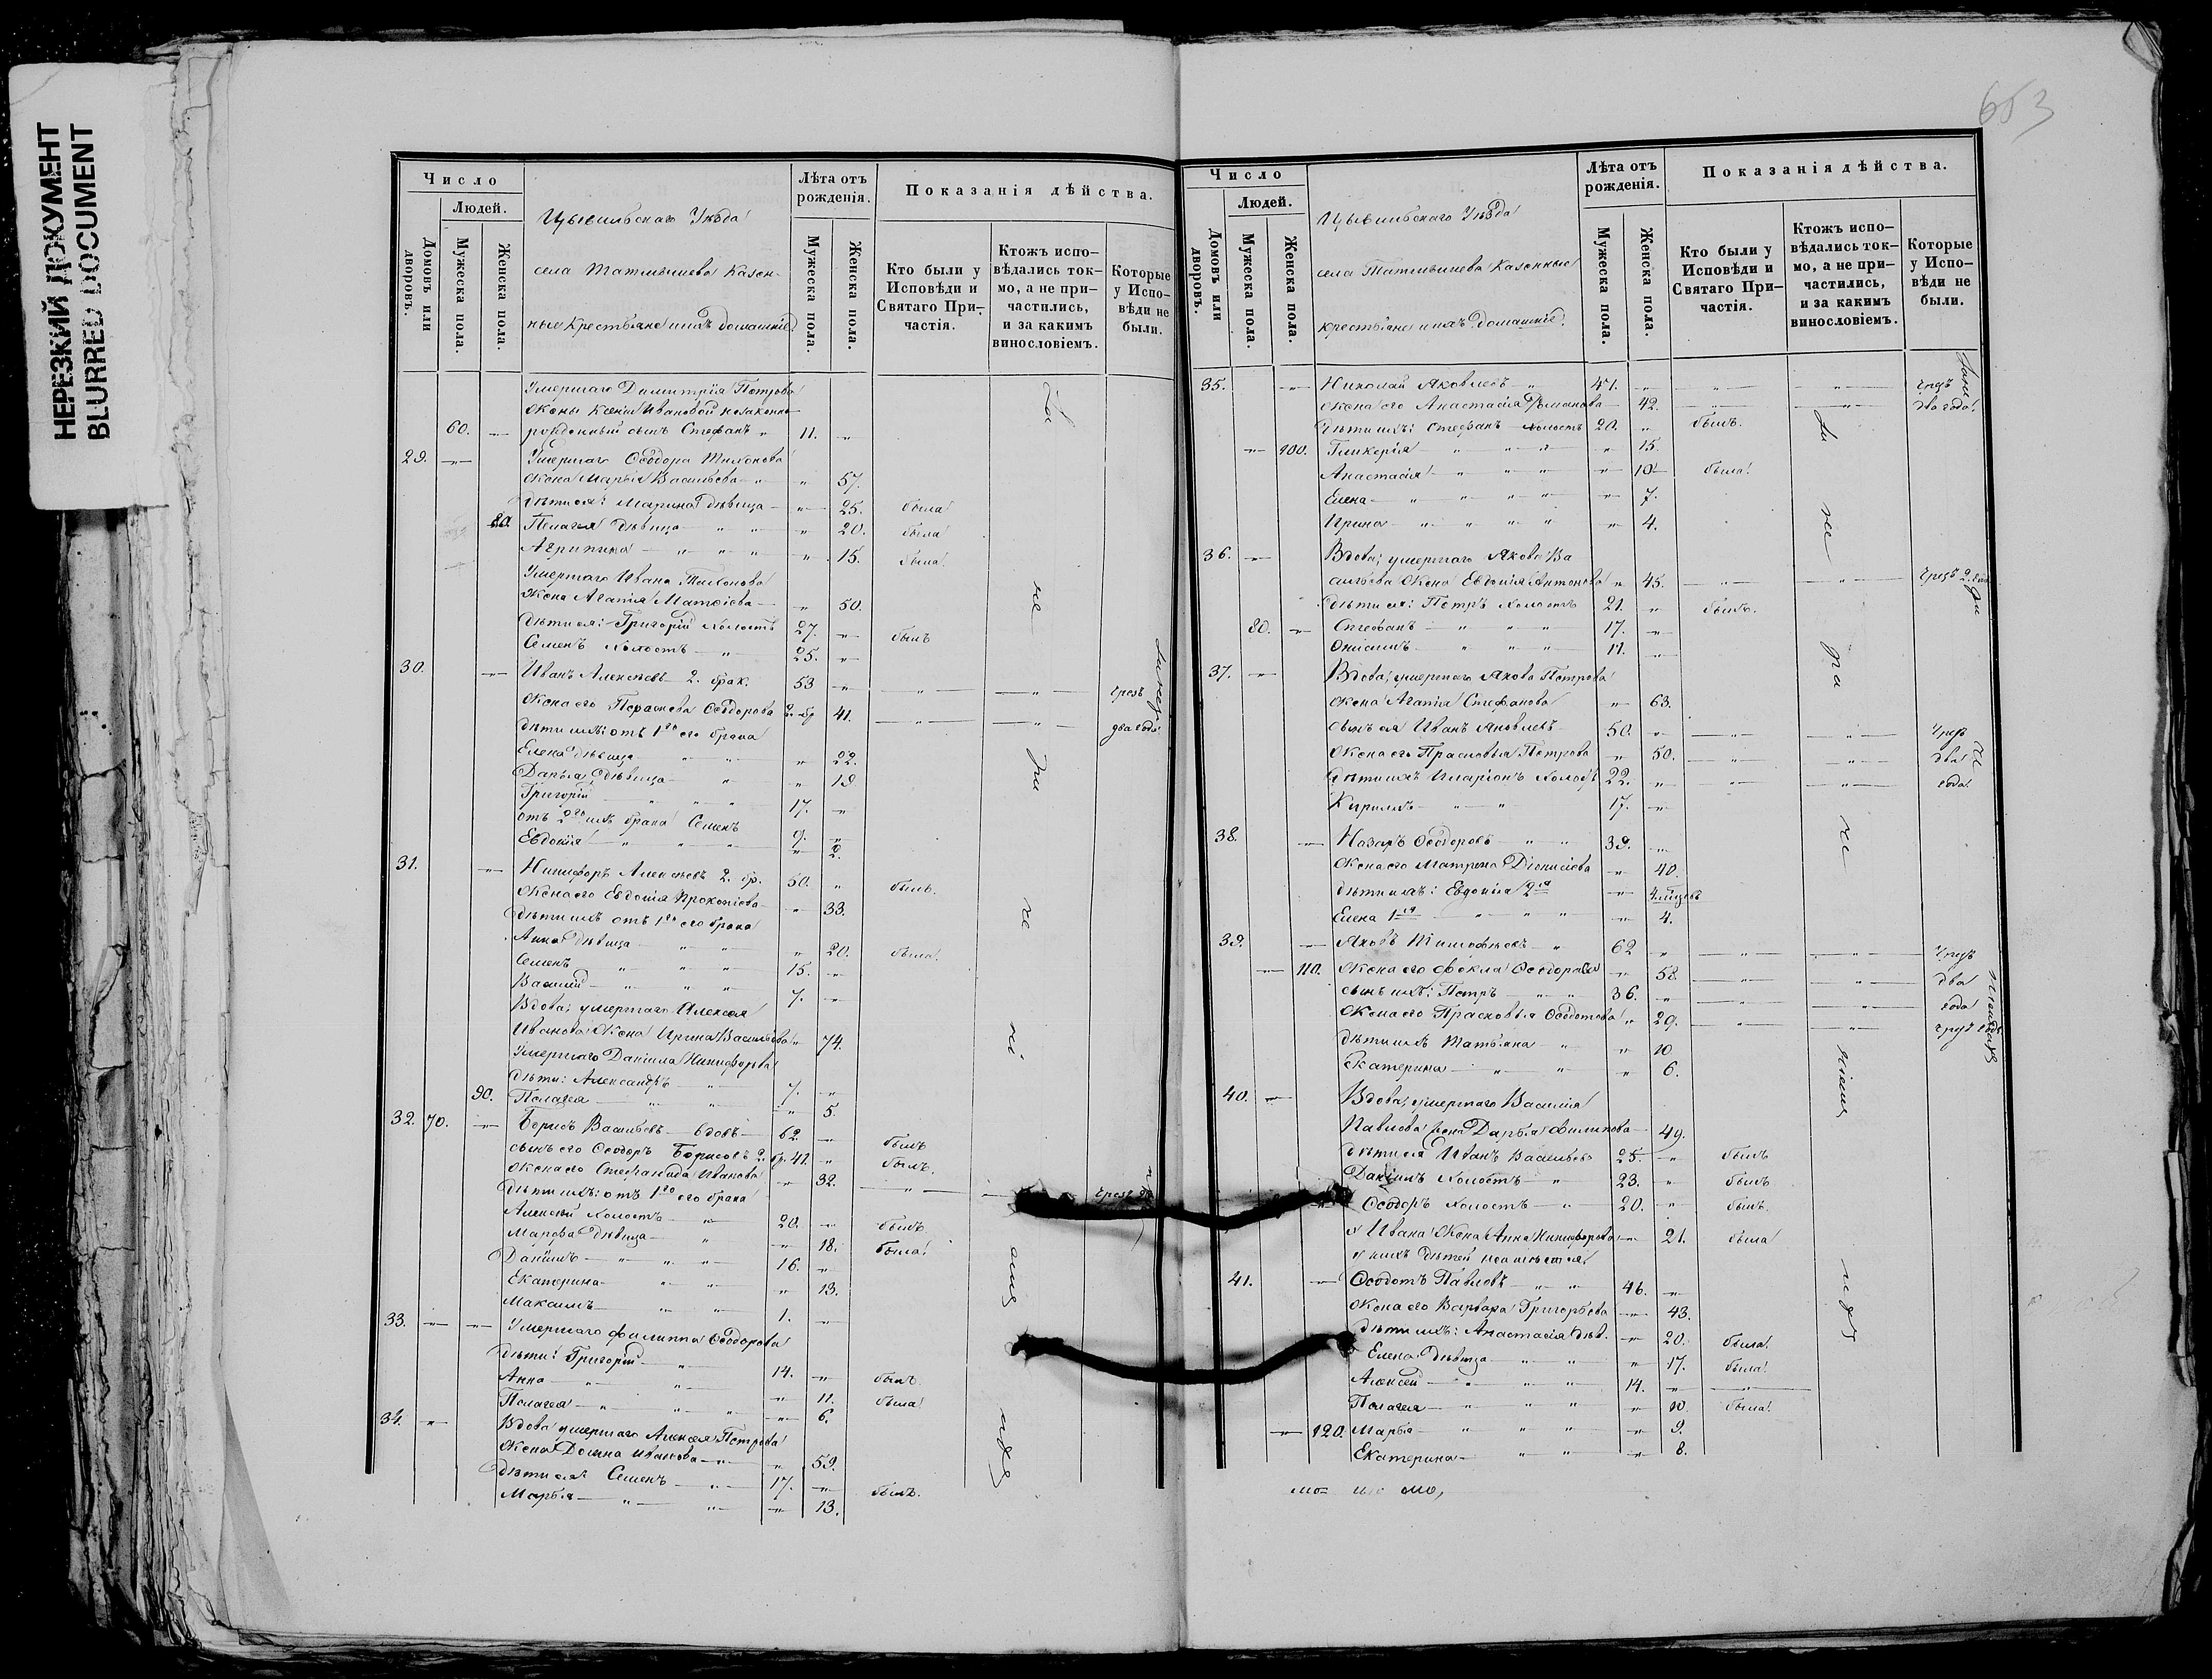 НЕРЕЗКИЙ ДОКУМЕНТ
BLURRED DOCUMENT
653
Число
Людей.
Домовъ или дворовъ.
Мужеска пола.
Женска пола.
Цывильскаго Уѣзда
села Казен-
ные Крестьяне и ихъ домашніе
Лѣта отъ рожденія.
Мужеска пола.
Женска пола.
Показанія дѣйства.
Кто были у Исповѣди и Святаго При-частія.
Ктожъ испо-вѣдались ток-мо, а не при-частились, и за какимъ винословіемъ.
Которые у Испо-вѣди не были.
Умершаго Димитрія Петрова
жены Ксеніи Ивановой незаконно
60. рожденный сынъ Стефанъ 11.
29. Умершаго Ѳеодора Тихонова
Жена Марья Васильева 57.
дѣти ея: Марина дѣвица 25. была
80. Пелагея дѣвица 20. была
Агрипина 15. была
Умершаго Ивана Тихонова
Жена Агапія Матѳіева 50.
дѣти ея: Григорій холостъ 27. былъ
Семенъ холостъ 25.
30. Иванъ Алексѣевъ 2. брак. 53 чрезъ
Жена его Параскева Ѳеодорова 2. бр 41. два года
дѣти ихъ: отъ 1го его брака
Елена дѣвица 22.
Дарья дѣвица 19
Григорій 17.
отъ 2го ихъ брака Семенъ 9.
Евдокія 2.
31. Никифоръ Алексѣевъ 2. бр. 50. былъ.
Жена его Евдокія Прокопіева 33.
дѣти ихъ отъ 1го его брака
Анна дѣвица 20. была.
Семенъ 15.
Василій 7.
Вдова; умершаго Алексея
Иванова Жена Ирина Васильева 74.
Умершаго Даніила Никифорова
дѣти: Александръ 7.
90. Пелагея 5.
32. 70. Борисъ Васильевъ вдовъ 62. былъ
сынъ его Ѳеодоръ Борисовъ 2. бр. 41. былъ.
Жена его Стефанида Иванова 32. чрезъ
дѣти ихъ: отъ 1го его брака
Алексѣй холостъ 20. былъ
Марфа дѣвица 18. была.
Даніилъ 16.
Екатерина 13.
Максимъ 1.
33. Умершаго Филиппа Ѳеодорова
дѣти: Григорій 14. былъ.
Анна 11. была
Пелагея 6.
34. Вдова умершаго Алексея Петрова
Жена Домна Иванова 59.
дѣти ея: Семенъ 17. былъ.
Марья 13.
Число
Людей.
Домовъ или дворовъ.
Мужеска пола.
Женска пола.
Цывильскаго Уѣзда
села Казенные
крестьяне и ихъ домашніе.
Лѣта отъ рожденія.
Мужеска пола.
Женска пола.
Показанія дѣйства.
Кто были у Исповѣди и Святаго При-частія.
Ктожъ испо-вѣдались ток-мо, а не при-частились, и за какимъ винословіемъ.
Которые у Испо-вѣди не были.
35. Николай Яковлевъ 47. чрезъ
Жена его Анастасія Романова 42. два года.
Дѣти ихъ: Стефанъ холостъ 20. былъ.
100. Гликерія 15.
Анастасія 10 была.
Елена 7.
Ирина 4.
36. Вдова; умершаго Якова Ва
сильева Жена Евдокія Антонова 45. чрезъ 2.
дѣти ея: Петръ холостъ 21. былъ.
80. Стефанъ 17.
Онисимъ 11.
37. Вдова; умершаго Якова Петрова
Жена Агапія Стефанова 63.
сынъ ея Иванъ Яковлевъ 50. чрезъ
Жена его Прасковья Петрова 50. два
дѣти ихъ Иларіонъ холостъ 22. года.
Кирилъ 17.
38. Назаръ Ѳеодоровъ 39.
Жена его Матрена Діонисіева 40.
дѣти ихъ: Евдокія 2я
Елена 1я 4.
39. Яковъ Тимофѣевъ 62 чрезъ
110. Жена его Ѳекла Ѳеодорова 58. два
сынъ ихъ: Петръ 36. года
Жена его Прасковья Ѳеодотова 29. чрезъ
дѣти ихъ Татьяна 10
Екатерина 6.
40. Вдова; умершаго Василія
Павлова Жена Дарья Филипова 49.
дѣти ея Иванъ Васильевъ 25. былъ
Даніилъ холостъ 23. былъ
Ѳеодоръ холостъ 20. былъ.
у Ивана Жена Анна Никифорова 21. была
у нихъ дѣтей неимѣется
41. Ѳеодотъ Павловъ 46.
Жена его Варвара Григорьева 43.
дѣти ихъ: Анастасія дѣв. 20. была.
Елена дѣвица 17. была.
Алексей 14.
Пелагея 10 была.
120. Марья 9.
Екатерина 8.